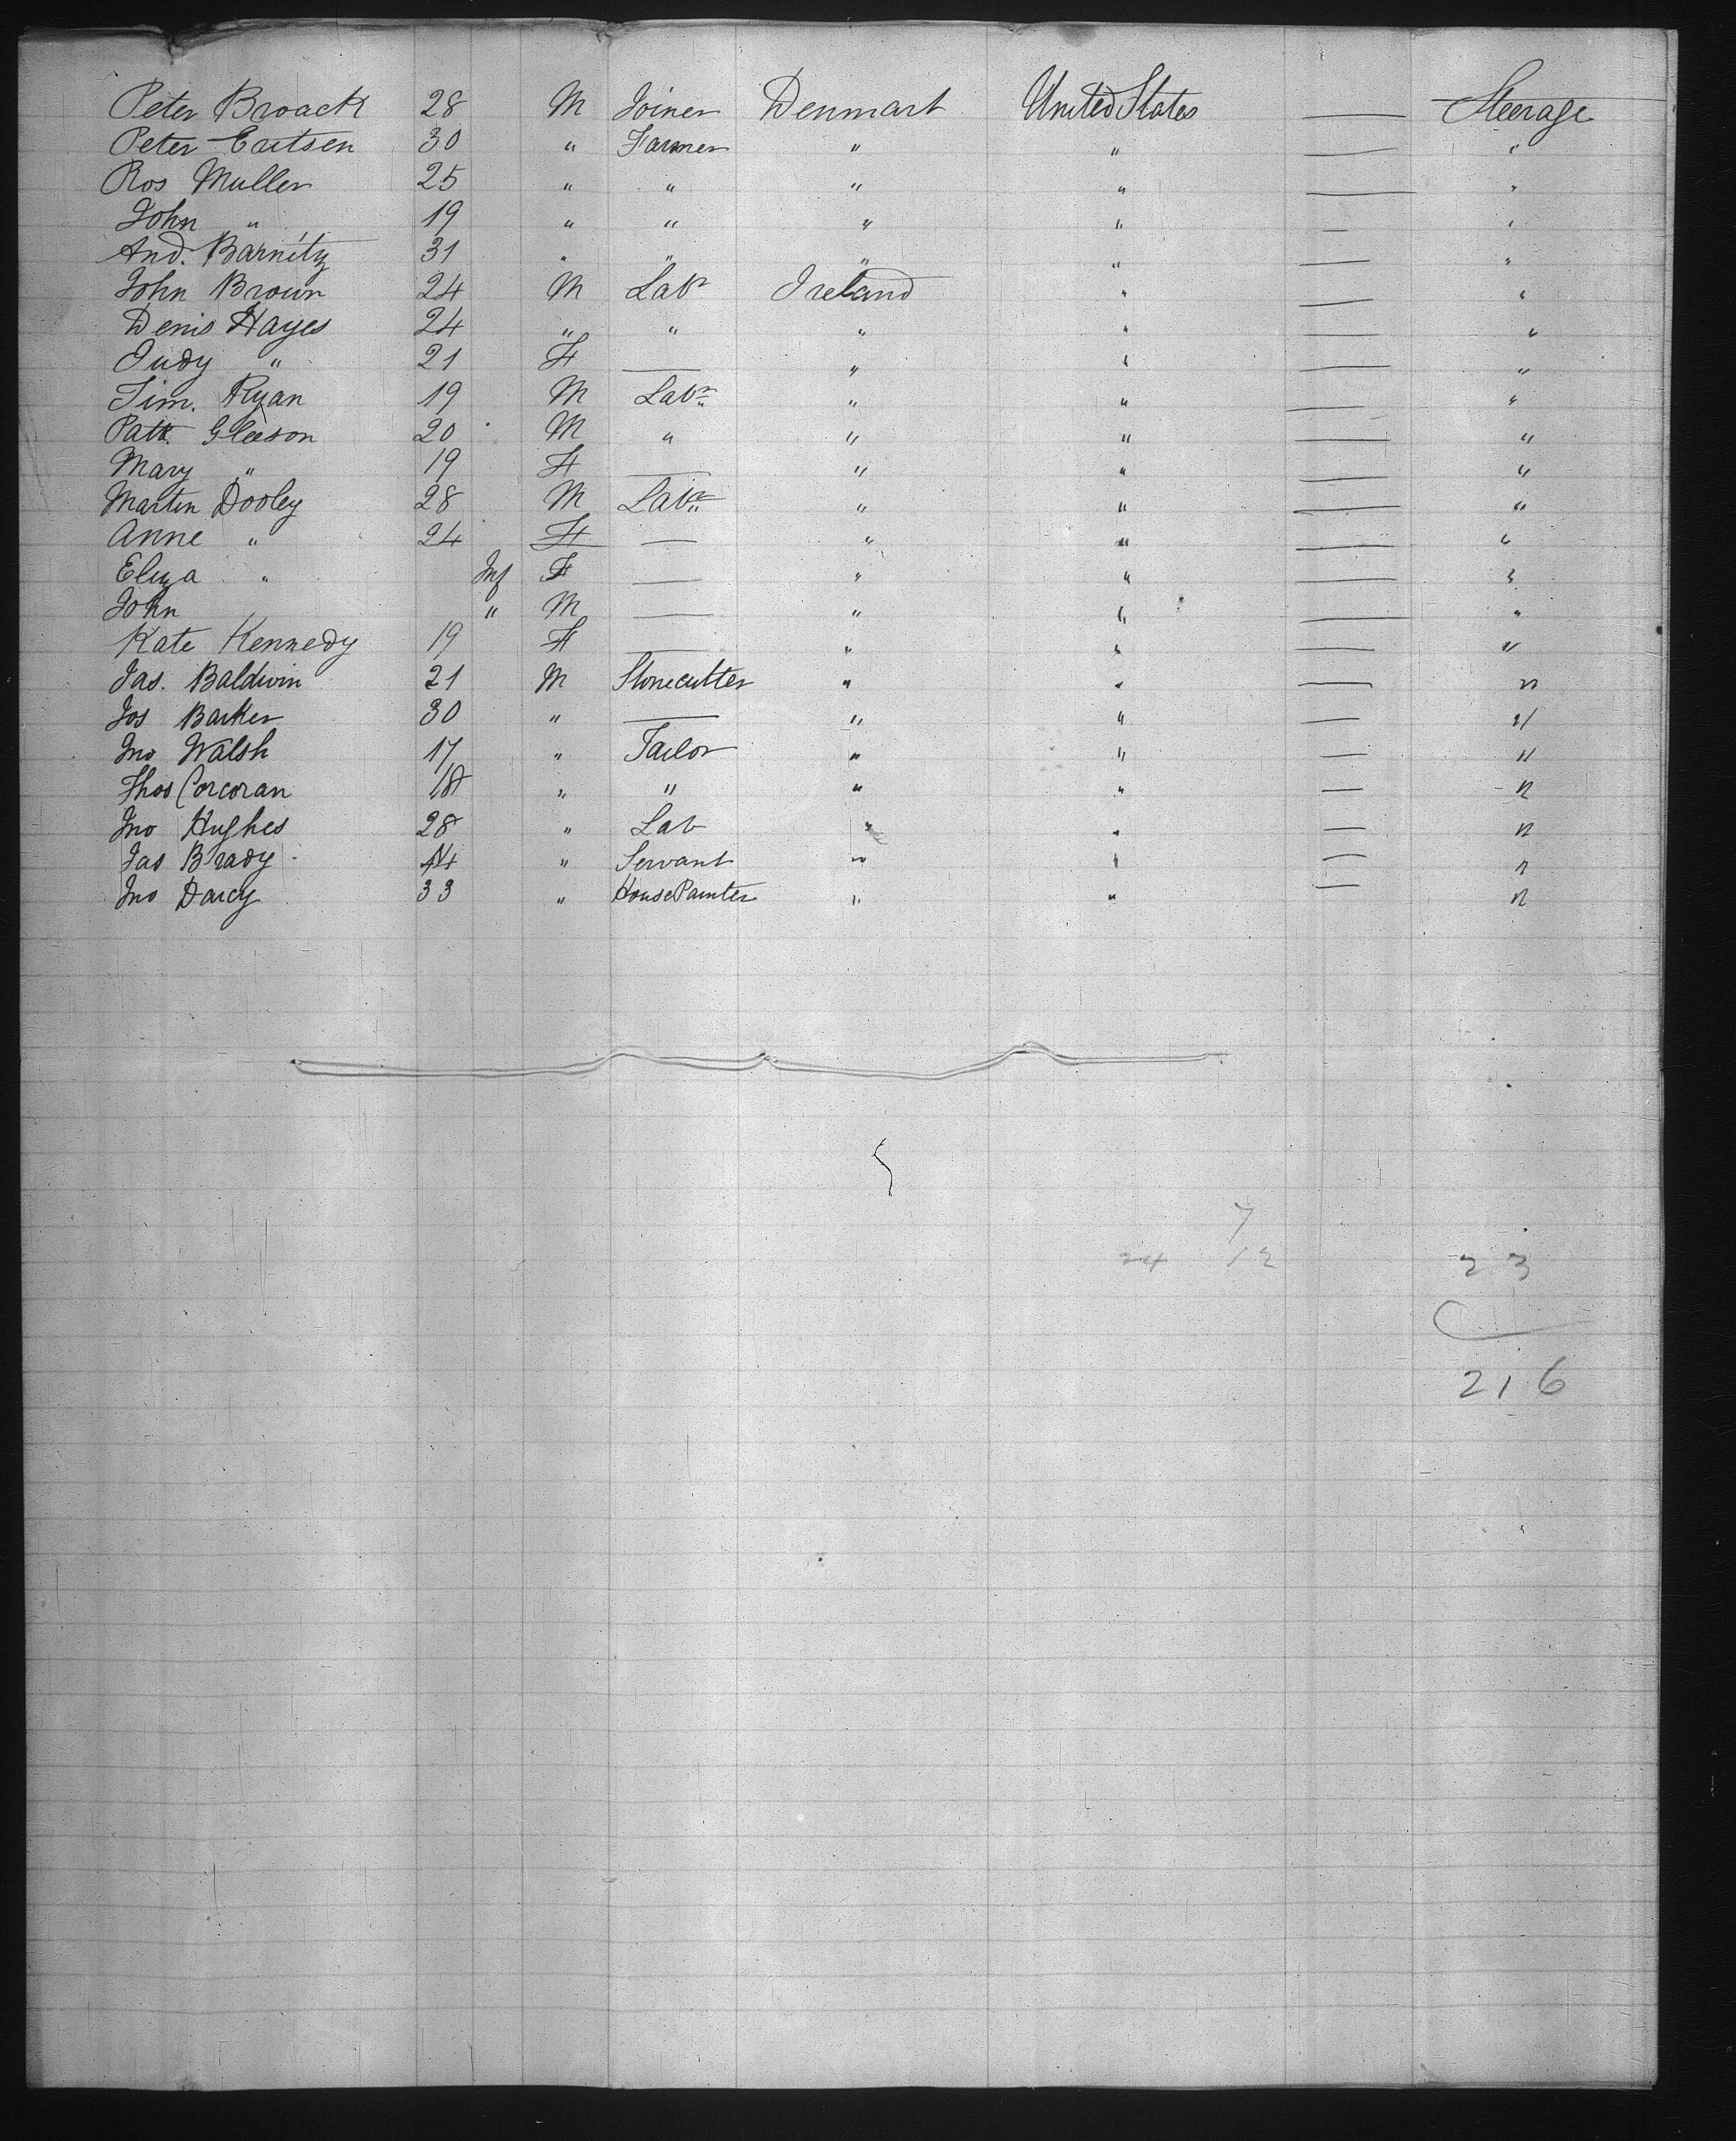 Peter Broack 28 M Joiner Denmark United States — Steerage
Peter Eritsen 30 " Farmer " " — "
Ros Muller 25 " " " " — "
John " 19 " " " " — "
And. Barnitz 31 " " " " — "
John Brown 24 M Labr Ireland " — "
Denis Hayes 24 " " " " — "
Judy " 21 F — " " — "
Tim. Ryan 19 M Labr " " — "
Patk. Gleeson 20 M " " " — "
Mary " 19 F — " " — "
Martin Dooley 28 M Labr " " — "
Anne " 24 F — " " — "
Eliza " Inf F — " " — "
John " M — " " — "
Kate Kennedy 19 F — " " — "
Jas. Baldwin 21 M Stonecutter " " — "
Jos Barker 30 " — " " — "
Jno Walsh 17 " Tailor " " — "
Thos Corcoran 18 " " " " — "
Jno Hughes 28 " Lab " " — "
Jas Brady " Servant " " — "
Jno Darcy 33 " House Painter " " — "
7
24 12 23
216